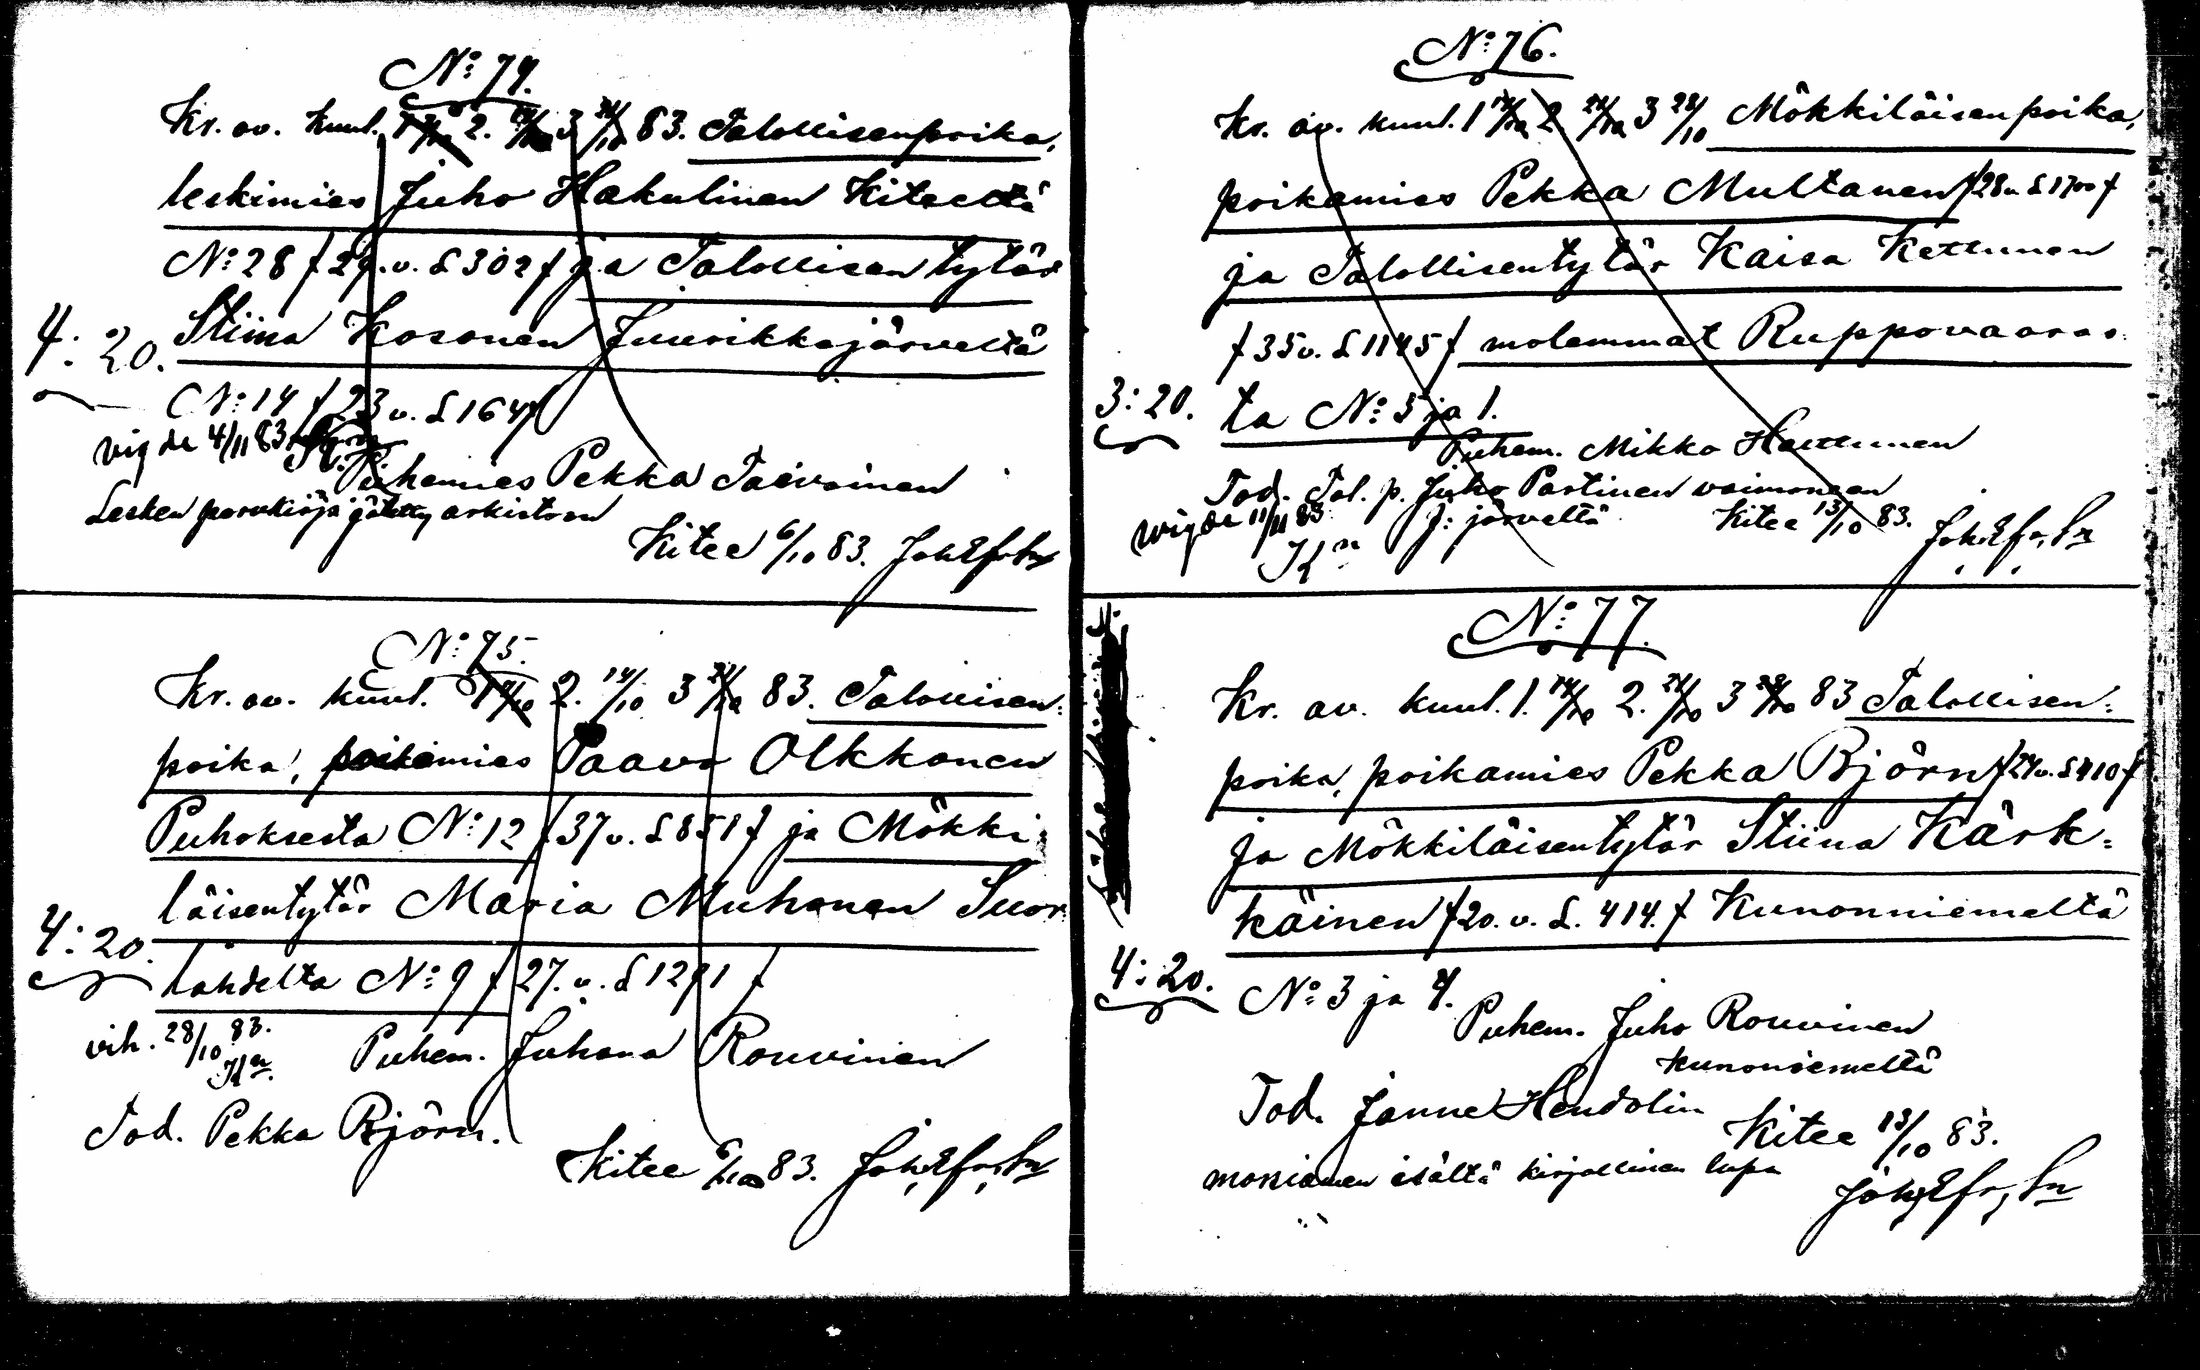 N:o 74.
Kr. av. kuul. 1 7/10 2. 14/10 3 21/10 83. Talollisenpoika,
leskimies Juho Hakulinen Kiteeltä
N:o 28 / 29. v. S 302 / ja Talollisen tytär
4: 20. Stiina Kosonen Juurikkajärveltä
N:o 14 / 23 v. S 164 /
vigde 4/11 83
Puhemies Pekka Taivainen
Lesken perukirja jätetty arkistoon
Kitee 6/10 83.
N:o 75.
Kr. av. kuul. 1 7/10 2. 14/10 3 21/10 83. Talollisen-
poika, poikamies Paavo Olkkonen
Puhoksesta N:o 12 / 37 v. S 851 / ja Mökki-
läisentytär Maria Muhonen Suor
4: 20. lahdelta N:o 9 / 27. v. S 1291 /
vih. 28/10 83.
Puhem. Juhana Rouvinen
Tod. Pekka Björn.
Kitee 6/10 83.
N:o 76.
Kr. av. kuul. 1 14/10 2 21/10 3 28/10 Mökkiläisenpoika,
poikamies Pekka Multanen / 28 v. S 1700 /
ja Talollisentytär Kaisa Kettunen
/ 35 v. S 1145 / molemmat Ruppovaaras-
3: 20. ta N:o 5 ja 1.
Puhem. Mikko Hattunen
Tod. Tal. p. Juho Partinen vaimoneen
J: järveltä
wigde 11/11 83
Kitee 13/10 83.
N:o 77.
Kr. av. kuul. 1. 14/10 2. 21/10 3 28/10 83 Talollisen-
poika, poikamies Pekka Björn / 24 v. S 410 /
ja Mökkiläisentytär Stiina Kärk-
käinen / 20. v. S. 414. / Kunonniemeltä
4: 20. N:o 3 ja 4.
Puhem. Juho Rouvinen
Kunoniemeltä
Tod. Janne Hendolin
Kitee 13/10 83.
morsiamen isältä kirjallinen lupa